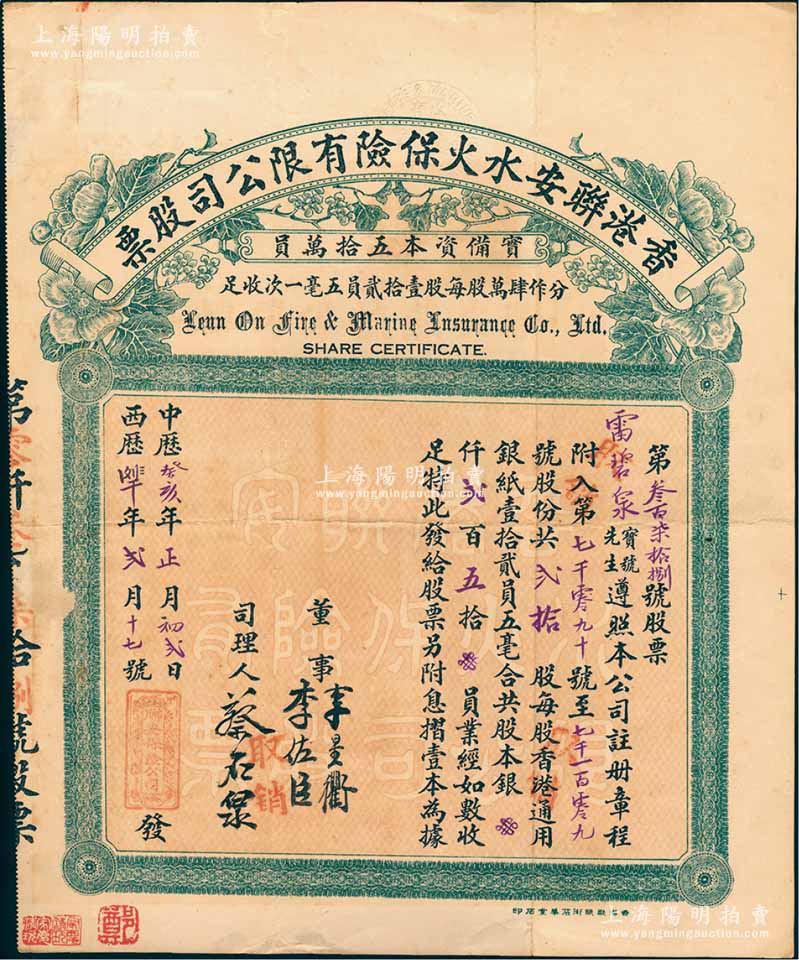 上海陽明拍賣
www.yangmingauction.com
香港聯安水火保險有限公司股票
實備資本五拾萬員
分作肆萬股每股壹拾貳員五毫一次收足
Leun On Fire & Marine Insurance Co., Ltd.
SHARE CERTIFICATE.
第叁百柒拾捌號股票
雷碧泉寶號先生遵照本公司註册章程
附入第七千零九十號至七千一百零九
號股份共弍拾股每股香港通用
銀紙壹拾貳員五毫合共股本銀
仟弍百五拾員業經如數收
足特此發給股票另附息摺壹本為據
董事李星衢
李佐臣
司理人蔡石泉
取銷
中歷癸亥年正月初弍日
西歷年弍月十七號
發
上海陽明拍賣
www.yangmingauction.com
第零仟叁百柒拾捌號股票
鄭
上海陽明拍賣
www.yangmingauction.com